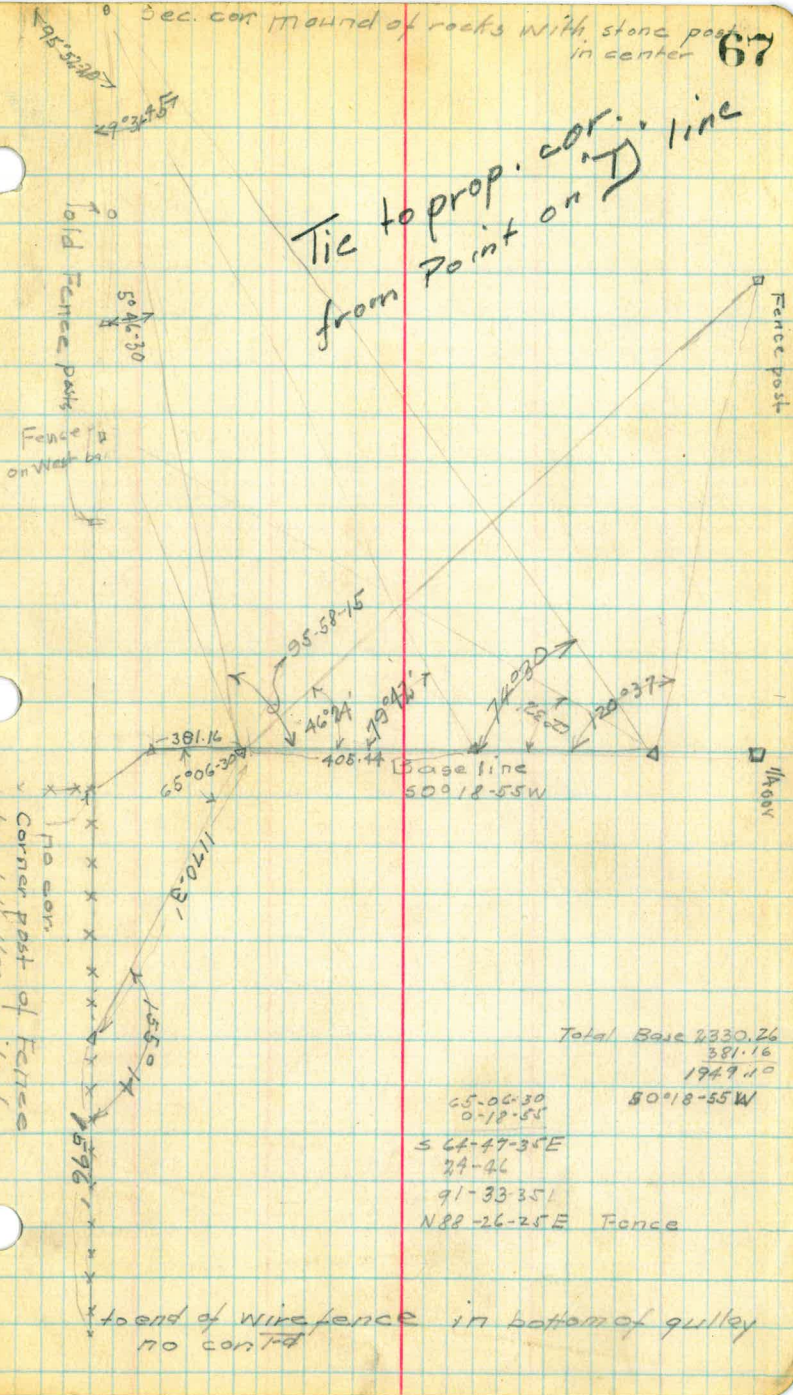 Sec. cor. mound of rocks with stone post
in center
67
95°52-20
9°31-45
Tie to prop. cor.
from Point on "D" line
old Fence posts
5°46-30
Fence
on West
Fence post
95-58-15
46°24'
79°42'
74°30
120°37
381.16
65°06-30
405.44
Base line
S0°18-55W
1/4 cor
1170.3
no cor.
Corner post of Fence
155°14
1596
Total Base 2330.26
381.16
1949.10
S0°18-55W
65-06-30
0-18-55
S 64-47-35E
24-46
91-33-35
N88-26-25E Fence
to end of wire fence in bottom of gulley
no cont'd